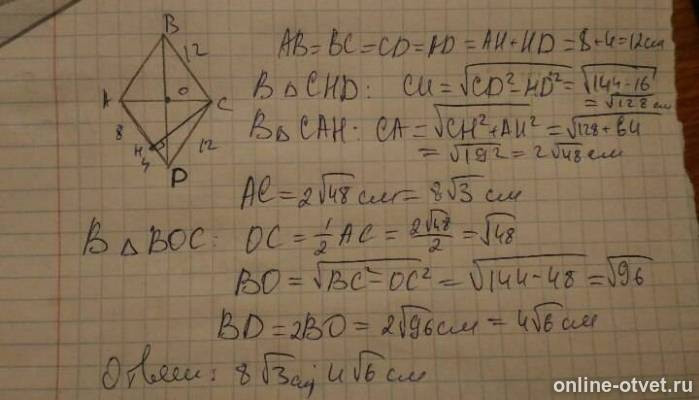 B
12
A
O
C
8
H
4
12
D
AB=BC=CD=AD=AH+HD=8+4=12см
В △CHD: CH=√(CD²-HD²)=√(144-16)
=√128 см
В △CAH: CA=√(CH²+AH²)=√(128+64)
=√192=2√48 см
AC=2√48 см=8√3 см
В △BOC: OC=1/2 AC=2√48/2=√48
BO=√(BC²-OC²)=√(144-48)=√96
BD=2BO=2√96 см=4√6 см
Ответ: 8√3 см; 4√6 см
online-otvet.ru